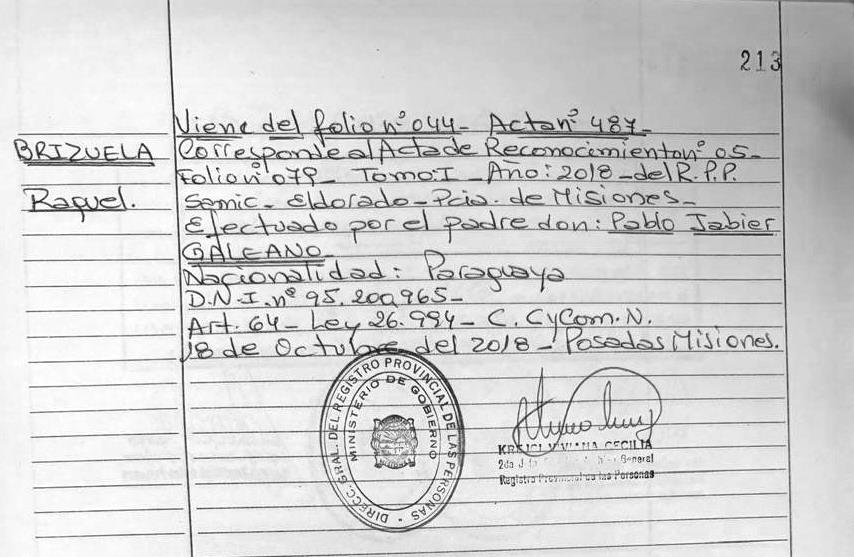 213
Viene del folio nº 044- Acta nº 487-
BRIZUELA
Corresponde al Acta de Reconocimiento nº 05-
Folio nº 079- Tomo: I - Año: 2018 - del R.P.P.
Raquel.
Samic- Eldorado- Pcia. de Misiones-
Efectuado por el padre don: Pablo Jabier
GALEANO-
Nacionalidad: Paraguaya
D.N.I. nº 95.200.965-
Art. 64- Ley 26.994- C. CyCom. N.
18 de Octubre del 2018- Posadas Misiones.
DIRECC. GRAL. DEL REGISTRO PROVINCIAL DE LAS PERSONAS
MINISTERIO DE GOBIERNO
VIVIANA CECILIA
2da General
Registro Provincial de las Personas